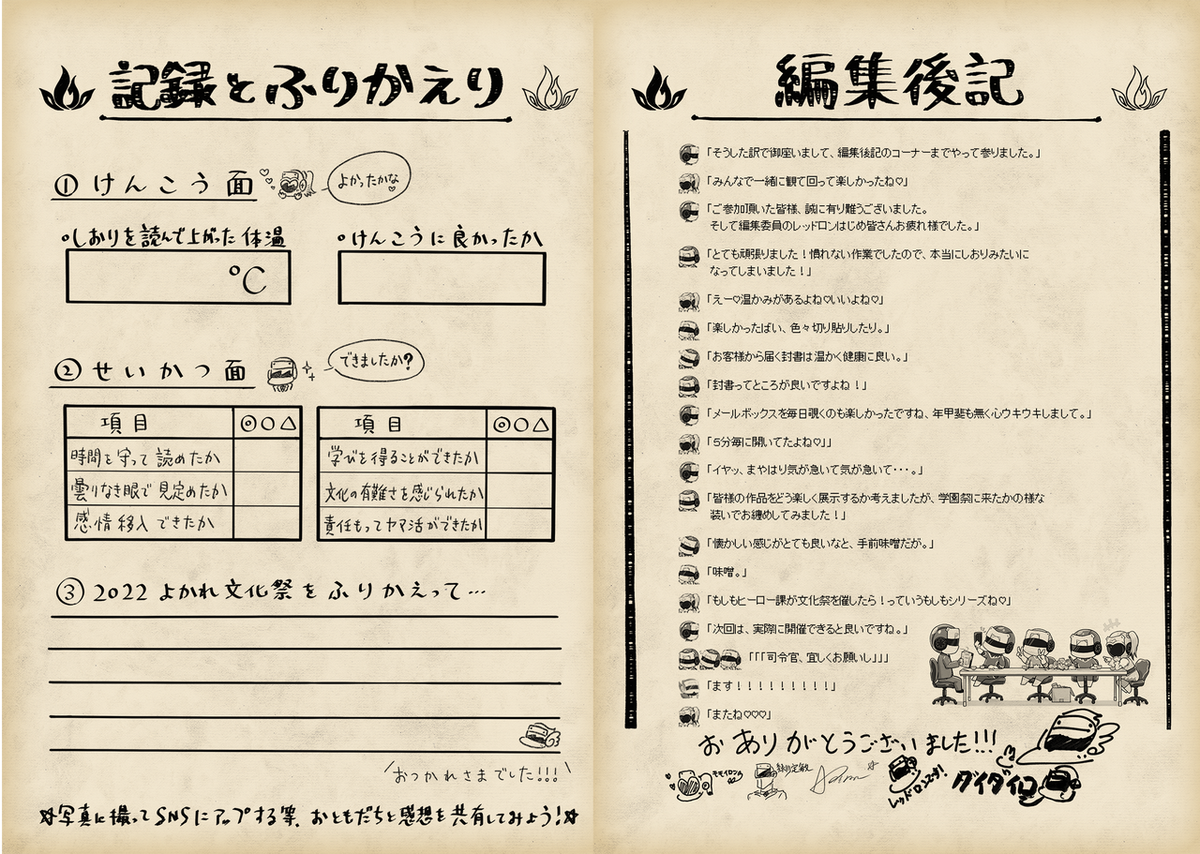 記録とふりかえり
① けんこう面
よかったかな♡
・しおりを読んで上がった体温
℃
・けんこうに良かったか
② せいかつ面
できましたか?
項目 ◎○△
時間を守って読めたか
曇りなき眼で見定めたか
感情移入できたか
項目 ◎○△
学びを得ることができたか
文化の有難さを感じられたか
責任もってヤマ活ができたか
③ 2022 よかれ文化祭をふりかえって…
おつかれさまでした!!!
☆写真に撮ってSNSにアップする等、おともだちと感想を共有してみよう!☆
編集後記
「そうした訳で御座いまして、編集後記のコーナーまでやって参りました。」
「みんなで一緒に観て回って楽しかったね♡」
「ご参加頂いた皆様、誠に有り難うございました。
そして編集委員のレッドロンはじめ皆さんお疲れ様でした。」
「とても頑張りました！慣れない作業でしたので、本当にしおりみたいに
なってしまいました！」
「えー♡温かみがあるよね♡いいよね♡」
「楽しかったばい、色々切り貼りしたり。」
「お客様から届く封書は温かく健康に良い。」
「封書ってところが良いですよね！」
「メールボックスを毎日覗くのも楽しかったですね、年甲斐も無く心ウキウキしまして。」
「5分毎に開いてたよね♡」」
「イヤッ、まやはり気が急いて気が急いて・・・。」
「皆様の作品をどう楽しく展示するか考えましたが、学園祭に来たかの様な
装いでお纏めしてみました！」
「懐かしい感じがとても良いなと、手前味噌だが。」
「味噌。」
「もしもヒーロー課が文化祭を催したら！っていうもしもシリーズね♡」
「次回は、実際に開催できると良いですね。」
「「「司令官、宜しくお願いし」」」
「ます！！！！！！！！！」
「またね♡♡♡」
おありがとうございました!!!
モモイロン
レッドロンでっす!
ダイダイロン